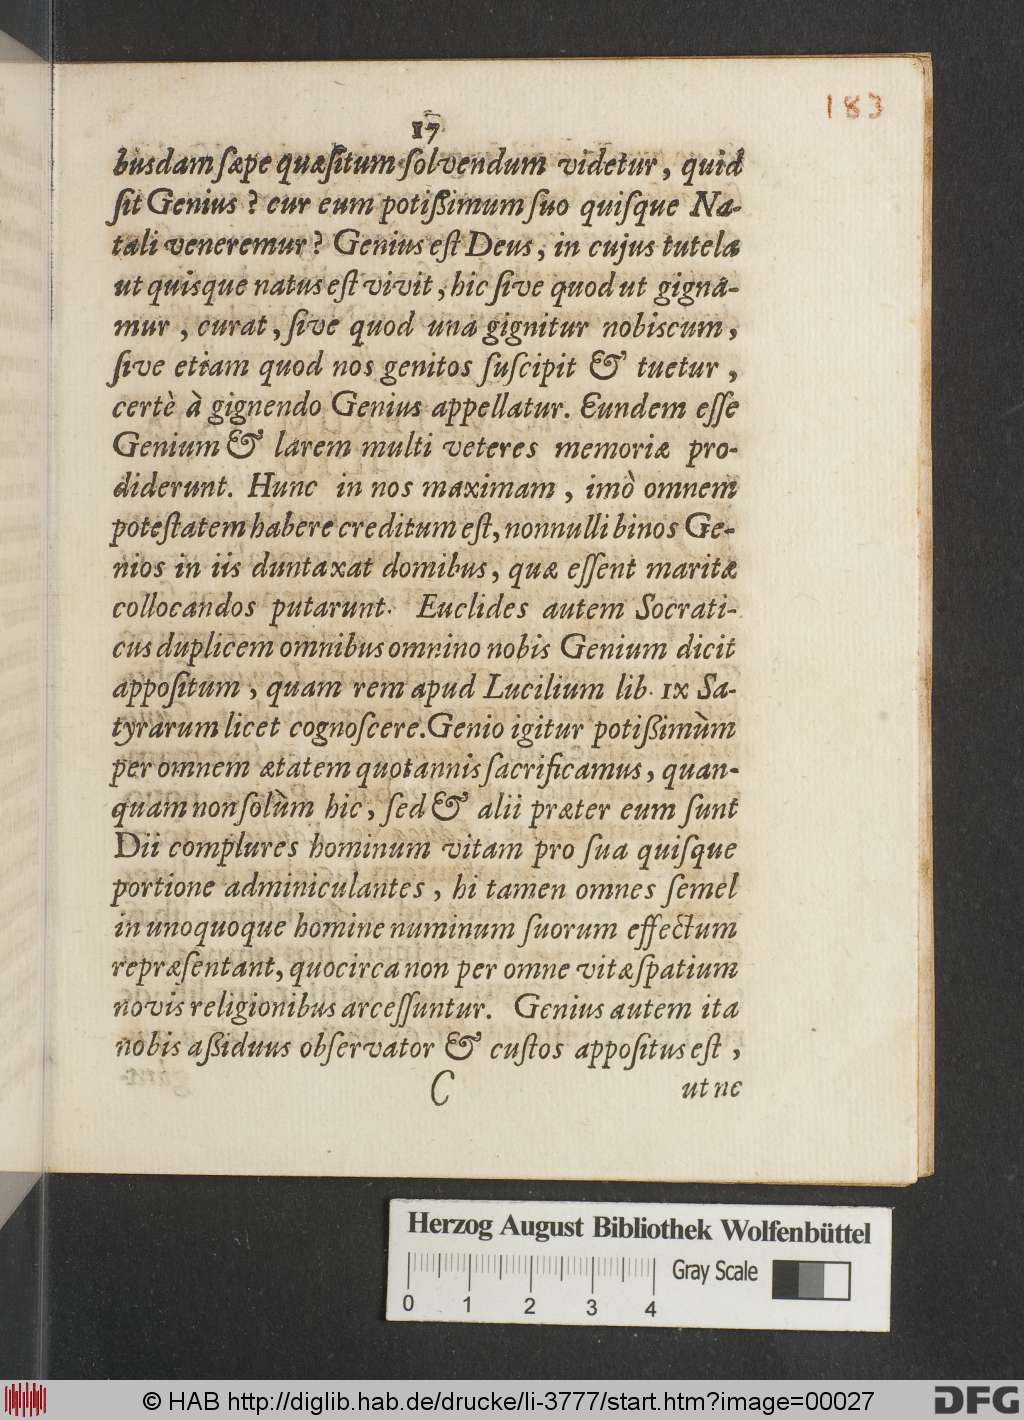 183
17
busdam sæpe quæsitum solvendum videtur, quid
sit Genius? eur eum potißimum suo quisque Na-
tali veneremur? Genius est Deus, in cujus tutela
ut quisque natus est vivit, hic sive quod ut gigna-
mur, curat, sive quod una gignitur nobiscum,
sive etiam quod nos genitos suscipit & tuetur,
certè à gignendo Genius appellatur. Eundem esse
Genium & larem multi veteres memoriæ pro-
diderunt. Hunc in nos maximam, imò omnem
potestatem habere creditum est, nonnulli binos Ge-
nios in iis duntaxat domibus, quæ essent maritæ
collocandos putarunt. Euclides autem Socrati-
cus duplicem omnibus omnino nobis Genium dicit
appositum, quam rem apud Lucilium lib. ix Sa-
tyrarum licet cognoscere. Genio igitur potißimùm
per omnem ætatem quotannis sacrificamus, quan-
quam non solùm hic, sed & alii præter eum sunt
Dii complures hominum vitam pro sua quisque
portione adminiculantes, hi tamen omnes semel
in unoquoque homine numinum suorum effectum
repræsentant, quocirca non per omne vitæ spatium
novis religionibus arcessuntur. Genius autem ita
nobis aßiduus observator & custos appositus est,
C ut ne
Herzog August Bibliothek Wolfenbüttel
Gray Scale
0 1 2 3 4
© HAB http://diglib.hab.de/drucke/li-3777/start.htm?image=00027
DFG